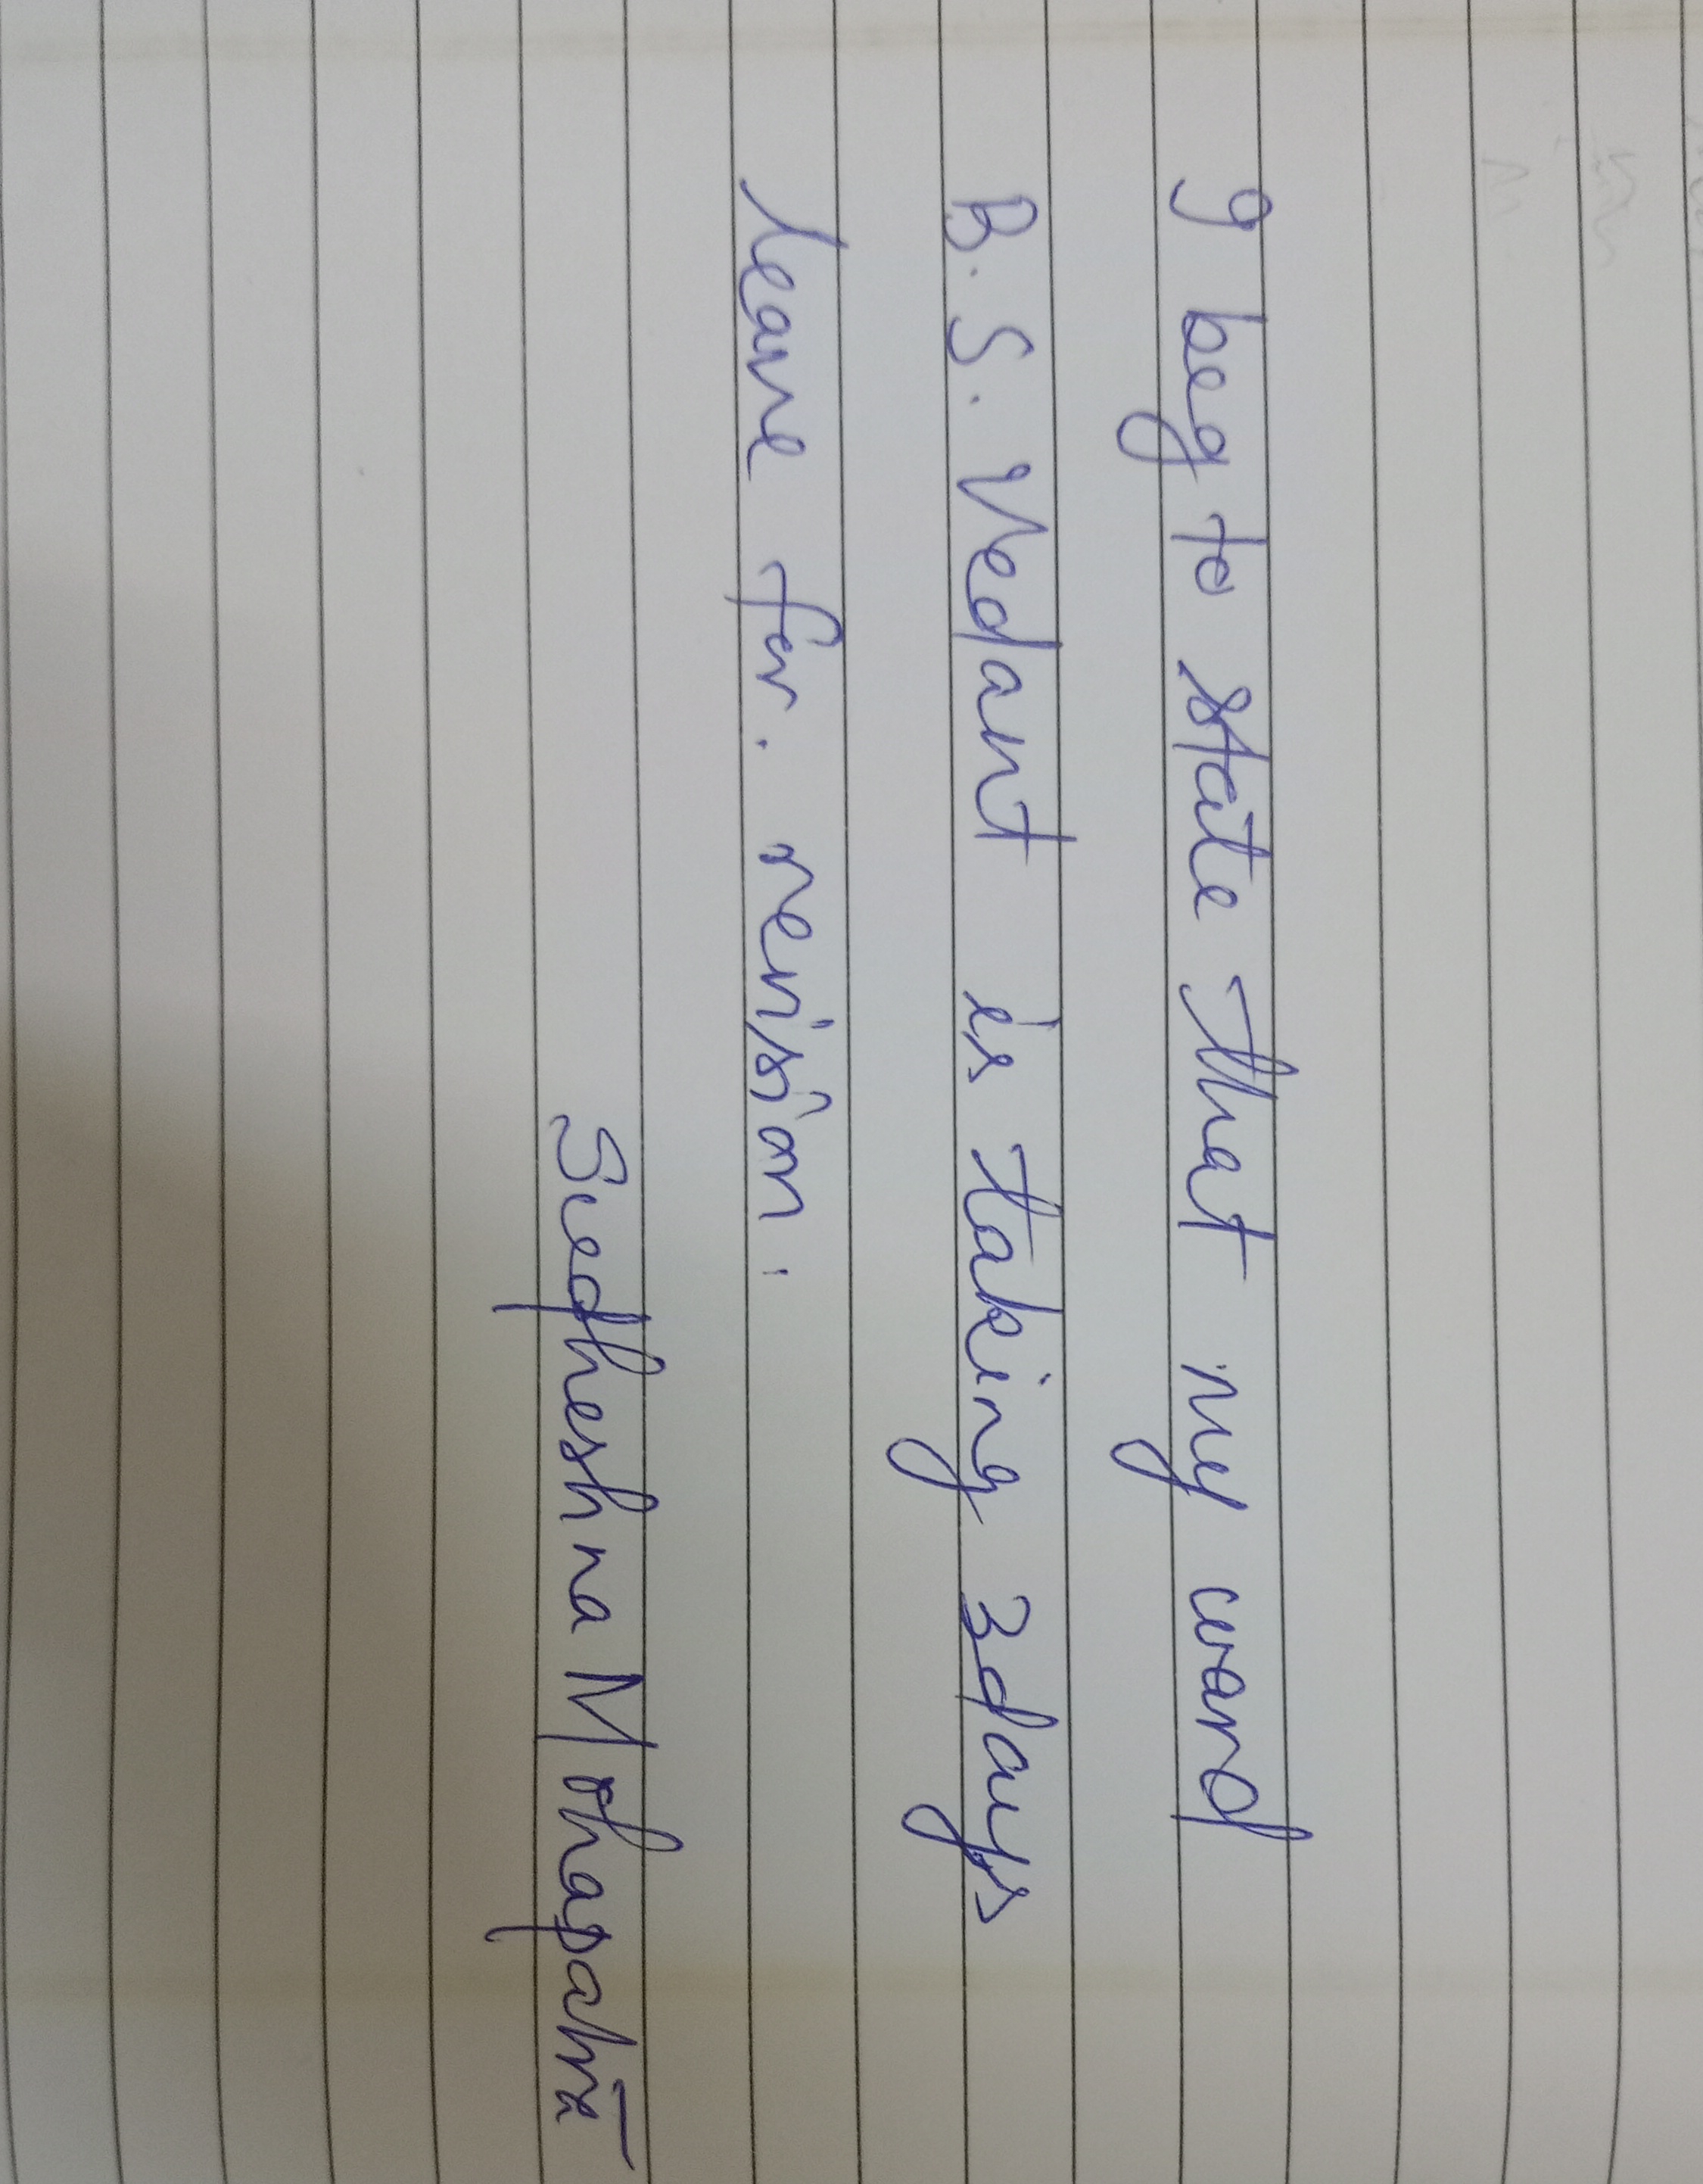 I beg to state that my ward
B. S. Vedant is taking 3 days
leave for. revision.
Suedheshna Mohapatra